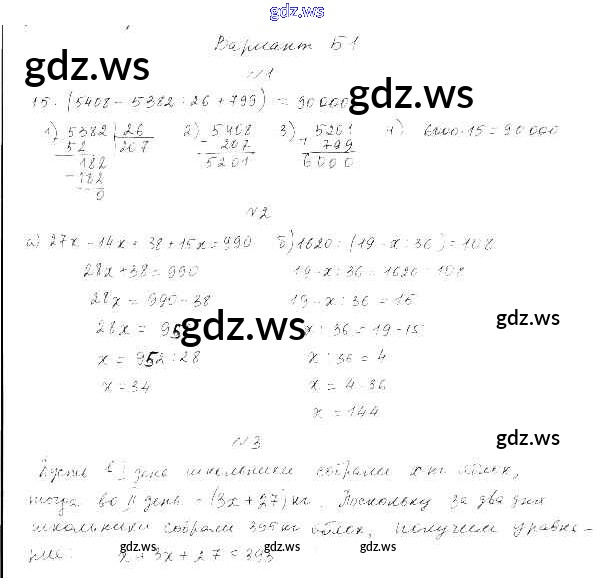 gdz.ws
Вариант Б1
gdz.ws
№1
15 · (5408 - 5382 : 26 + 799) = 90000
gdz.ws
1) 5382 | 26 2) 5408 3) 5201 4) 6000 · 15 = 90000
- 52 207 - 207 + 799
182 5201 6000
- 182
0
№2
а) 27x - 14x + 38 + 15x = 990 б) 1620 : (19 - x : 36) = 108
28x + 38 = 990 19 - x : 36 = 1620 : 108
28x = 990 - 38 19 - x : 36 = 15
28x = 952 x : 36 = 19 - 15
gdz.ws gdz.ws
x = 952 : 28 x : 36 = 4
x = 34 x = 4 · 36
x = 144
№3
gdz.ws
Пусть в I день школьники собрали x кг яблок,
тогда во II день - (3x + 27) кг. Поскольку за два дня
школьники собрали 395 кг яблок, получаем уравне-
ние: x + 3x + 27 = 395
gdz.ws gdz.ws gdz.ws